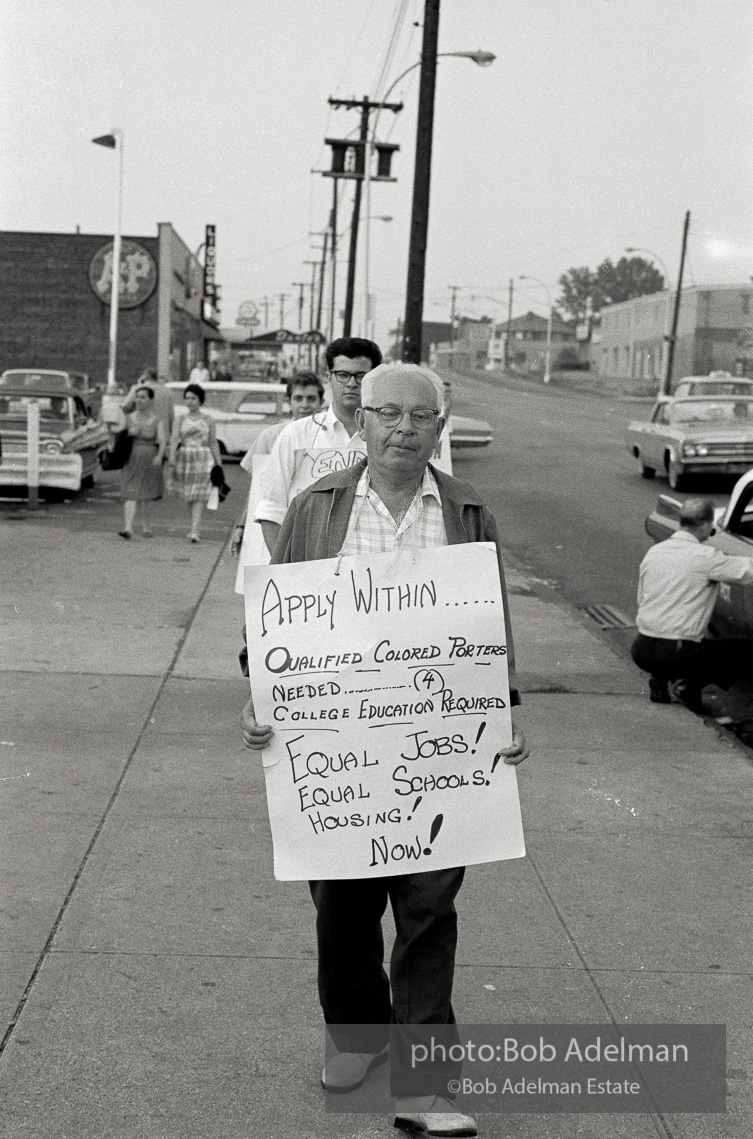 A&P
LIQUORS
END
APPLY WITHIN......
QUALIFIED COLORED PORTERS
NEEDED.............(4)
COLLEGE EDUCATION REQUIRED
EQUAL JOBS!
EQUAL SCHOOLS!
HOUSING!
NOW!
photo:Bob Adelman
©Bob Adelman Estate